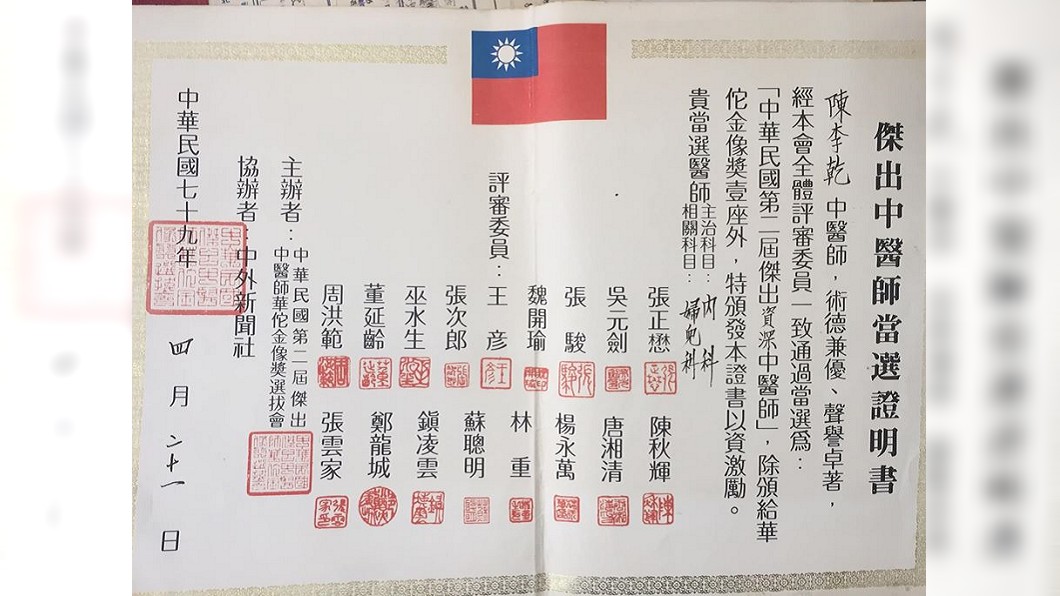 傑出中醫師當選證明書
陳李乾 中醫師，術德兼優、聲譽卓著，
經本會全體評審委員一致通過當選為：
「中華民國第二屆傑出資深中醫師」，除頒給華
佗金像獎壹座外，特頒發本證書以資激勵。
貴當選醫師
主治科目：內科
相關科目：婦兒科
評審委員：
張正懋 陳秋輝
吳元劍 唐湘清
張駿 楊永萬
魏開瑜
王彦 林重
張次郎 蘇聰明
巫水生 鎮凌雲
董延齡 鄭龍城
周洪範 張雲家
主辦者：
中華民國第二屆傑出
中醫師華佗金像獎選拔會
協辦者：中外新聞社
中華民國七十九年四月二十一日